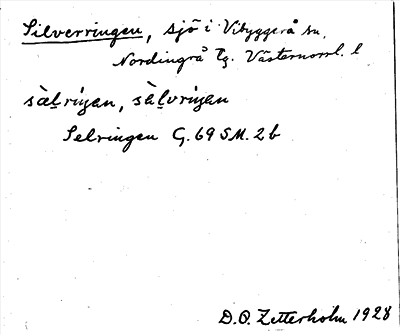 Silverringen, sjö i Vibyggerå sn.
Nordingrå tg. Västernorrl. l
sàlrigan, sàlvrigan
Selringen G. 69 SM. 2b
D.O. Zetterholm 1928